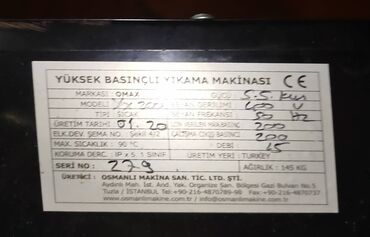 YÜKSEK BASINÇLI YIKAMA MAKİNASI CE
MARKASI : QMAX GÜCÜ 5.5 KW
MODELİ 200 GERİLİMİ 400 V
TİPİ : SICAK FREKANSI 50 HZ
ÜRETİM TARİHİ 01.20 BASINCI 200
ELK.DEV. ŞEMA NO. Şekil 4/2 ÇALIŞMA ÇIKIŞ BASINCI 200
MAX. SICAKLIK : 90 °C DEBİ 15
KORUMA DERC. : IP X 5 I. SINIF ÜRETİM YERİ : TURKEY
SERİ NO : 279 AĞIRLIK : 145 KG
ÜRETİCİ : OSMANLI MAKİNA SAN. TİC. LTD. ŞTİ.
Aydınlı Mah. İst. And. Yak. Organize San. Bölgesi Gazi Bulvarı No.5
Tuzla / İSTANBUL Tel :+90-216-4870789-98 Fax :+90-216-4870737
www.osmanlimakina.com info@osmanlimakina.com